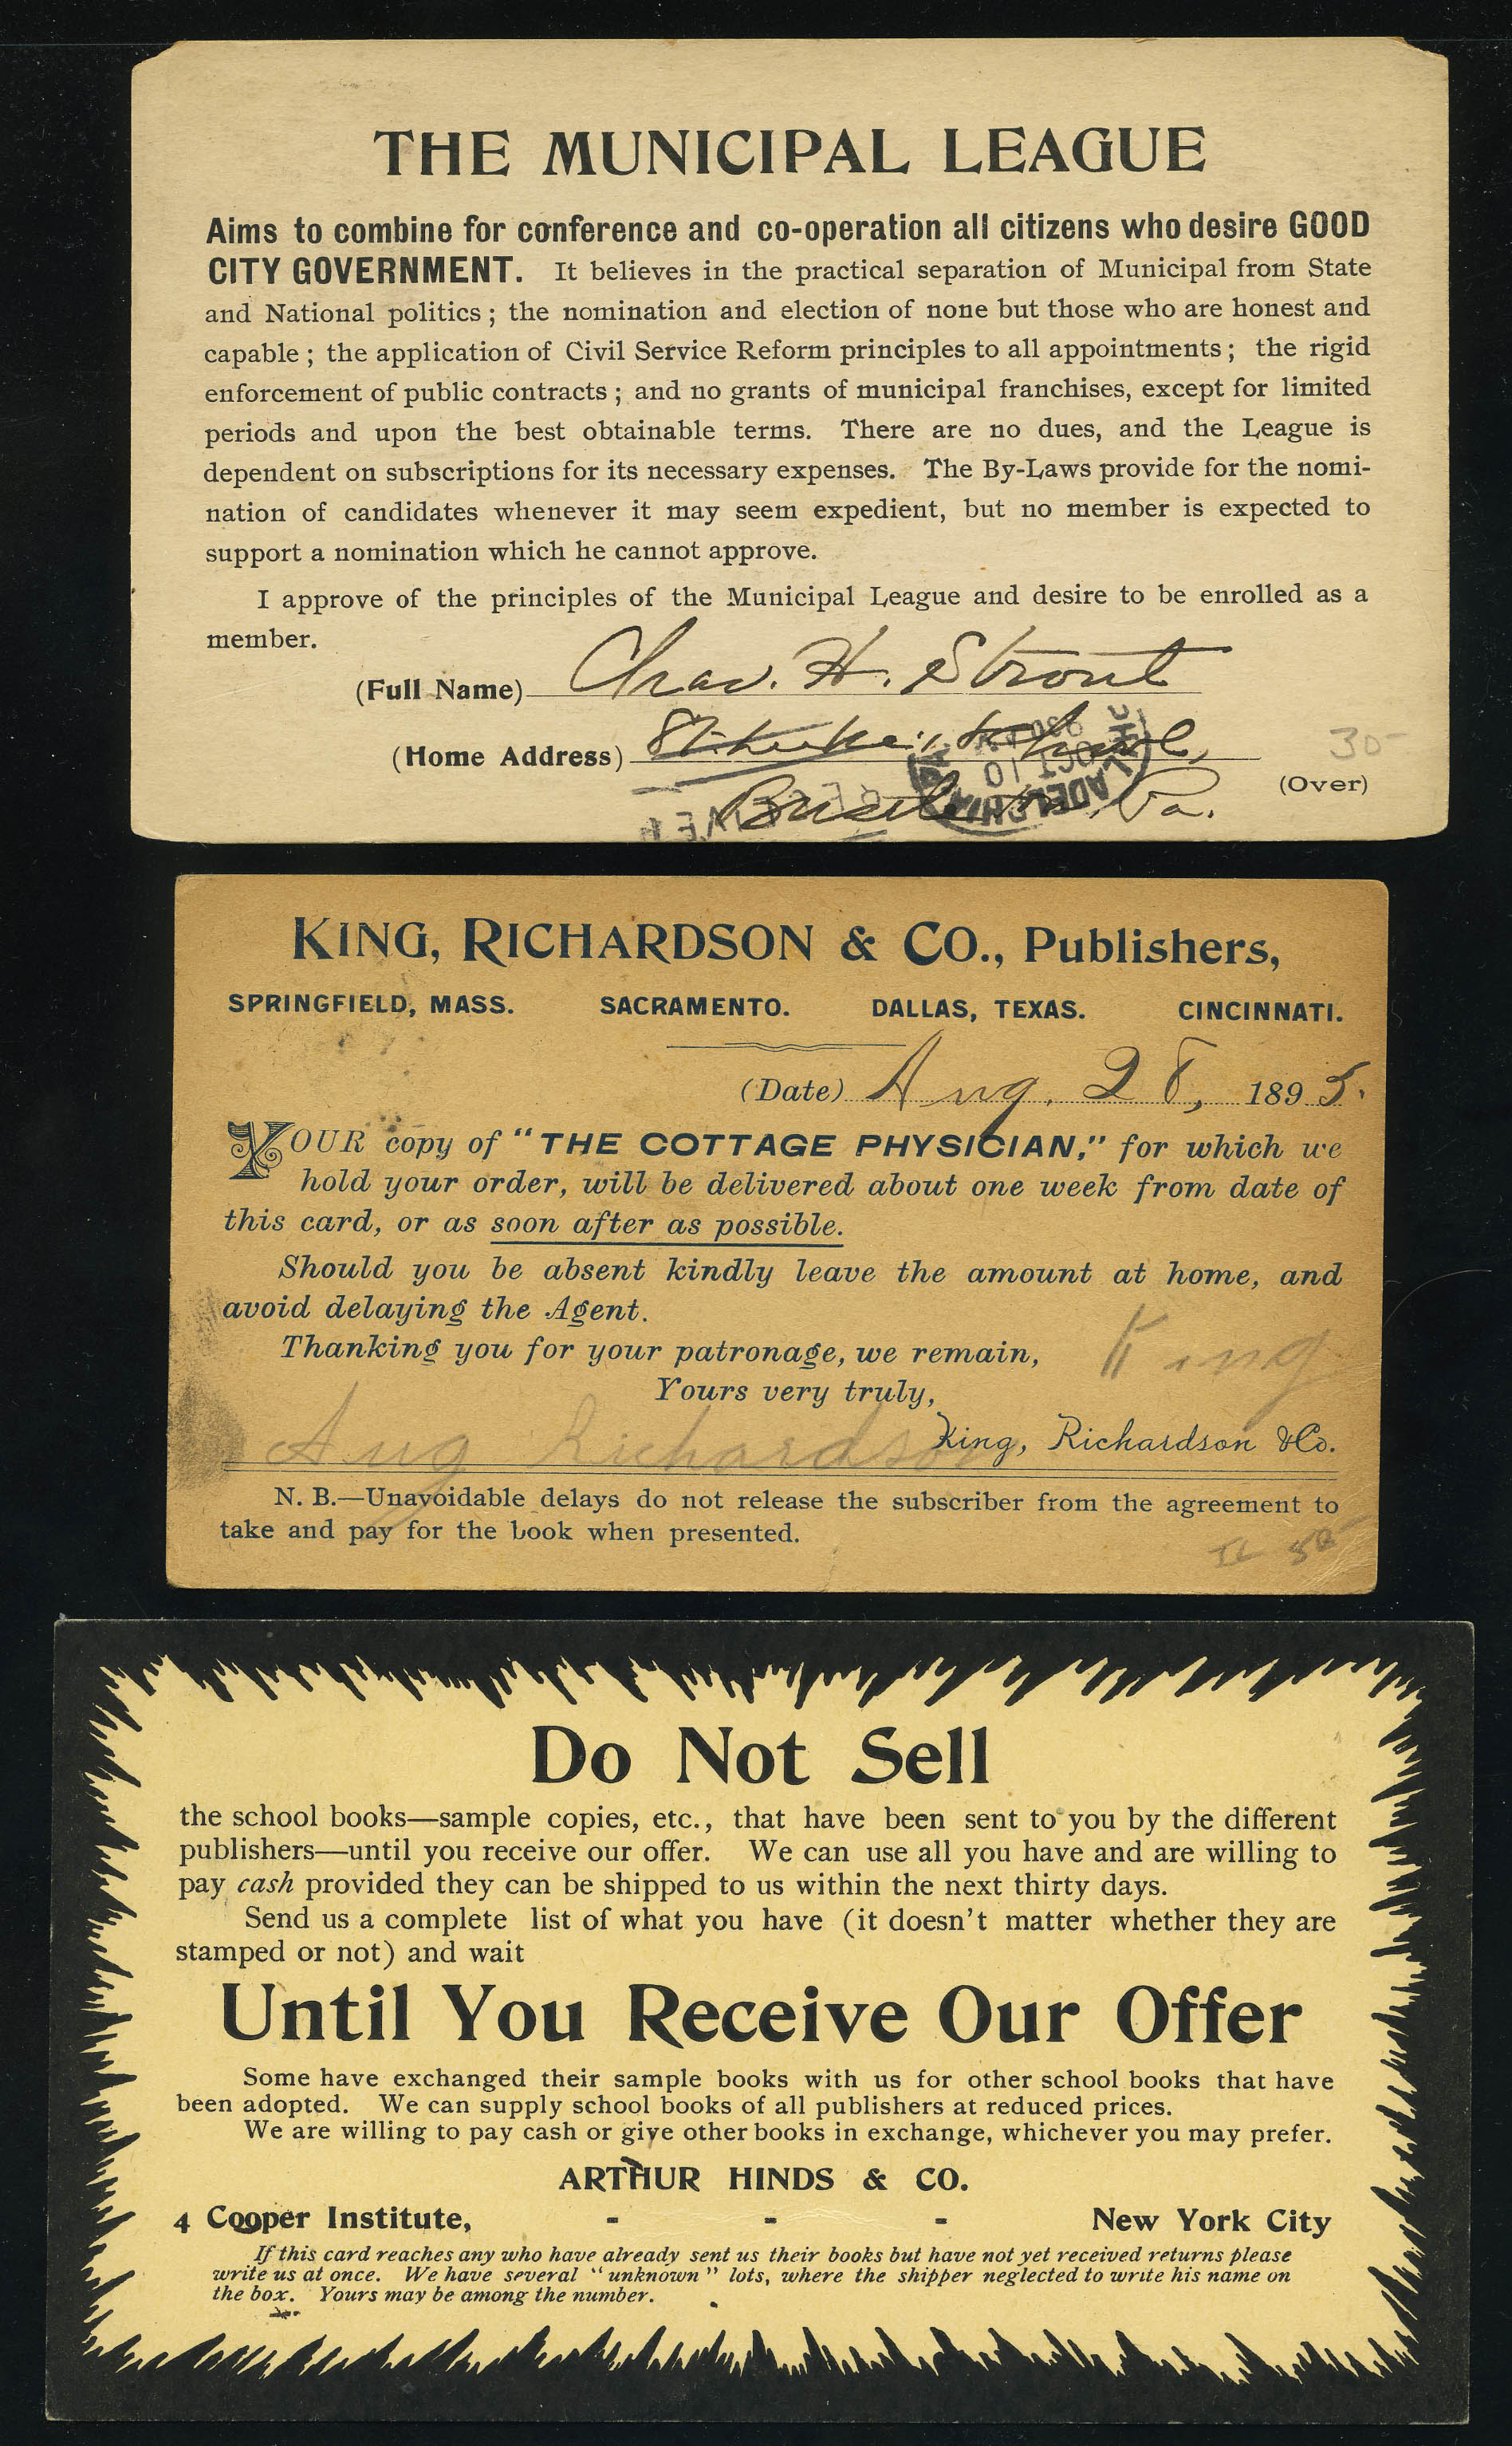 THE MUNICIPAL LEAGUE
Aims to combine for conference and co-operation all citizens who desire GOOD
CITY GOVERNMENT. It believes in the practical separation of Municipal from State
and National politics; the nomination and election of none but those who are honest and
capable; the application of Civil Service Reform principles to all appointments; the rigid
enforcement of public contracts; and no grants of municipal franchises, except for limited
periods and upon the best obtainable terms. There are no dues, and the League is
dependent on subscriptions for its necessary expenses. The By-Laws provide for the nomi-
nation of candidates whenever it may seem expedient, but no member is expected to
support a nomination which he cannot approve.
I approve of the principles of the Municipal League and desire to be enrolled as a
member.
(Full Name) Chas. H. Strout
(Home Address) St. Luke's School,
30-
(Over)
Bustleton, Pa.
PHILADELPHIA PA
OCT 10
930 AM
RECEIVED
KING, RICHARDSON & CO., Publishers,
SPRINGFIELD, MASS. SACRAMENTO. DALLAS, TEXAS. CINCINNATI.
(Date) Aug. 28, 1895.
YOUR copy of "THE COTTAGE PHYSICIAN," for which we
hold your order, will be delivered about one week from date of
this card, or as soon after as possible.
Should you be absent kindly leave the amount at home, and
avoid delaying the Agent.
Thanking you for your patronage, we remain,
King
Yours very truly,
King, Richardson & Co.
Aug Richardson
N. B.—Unavoidable delays do not release the subscriber from the agreement to
take and pay for the book when presented.
Do Not Sell
the school books—sample copies, etc., that have been sent to you by the different
publishers—until you receive our offer. We can use all you have and are willing to
pay cash provided they can be shipped to us within the next thirty days.
Send us a complete list of what you have (it doesn't matter whether they are
stamped or not) and wait
Until You Receive Our Offer
Some have exchanged their sample books with us for other school books that have
been adopted. We can supply school books of all publishers at reduced prices.
We are willing to pay cash or give other books in exchange, whichever you may prefer.
ARTHUR HINDS & CO.
4 Cooper Institute, - - - New York City
If this card reaches any who have already sent us their books but have not yet received returns please
write us at once. We have several "unknown" lots, where the shipper neglected to write his name on
the box. Yours may be among the number.